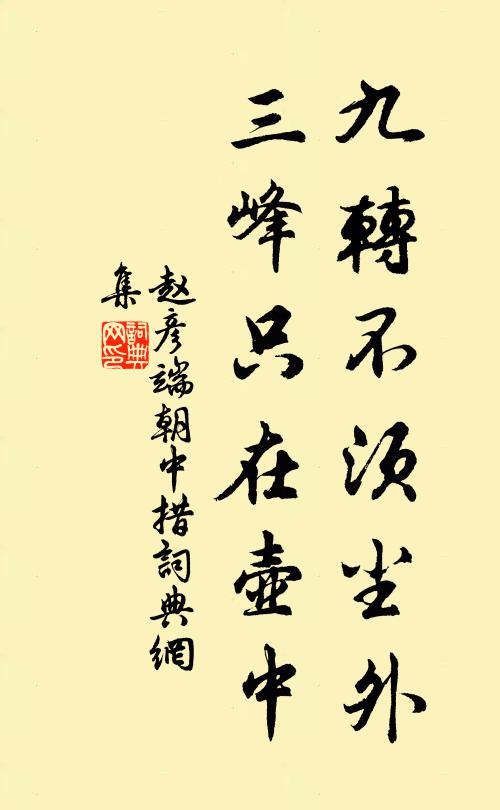 九轉不须尘外
三峰只在壶中
赵彦端朝中措詞典網
集
詞典
网印